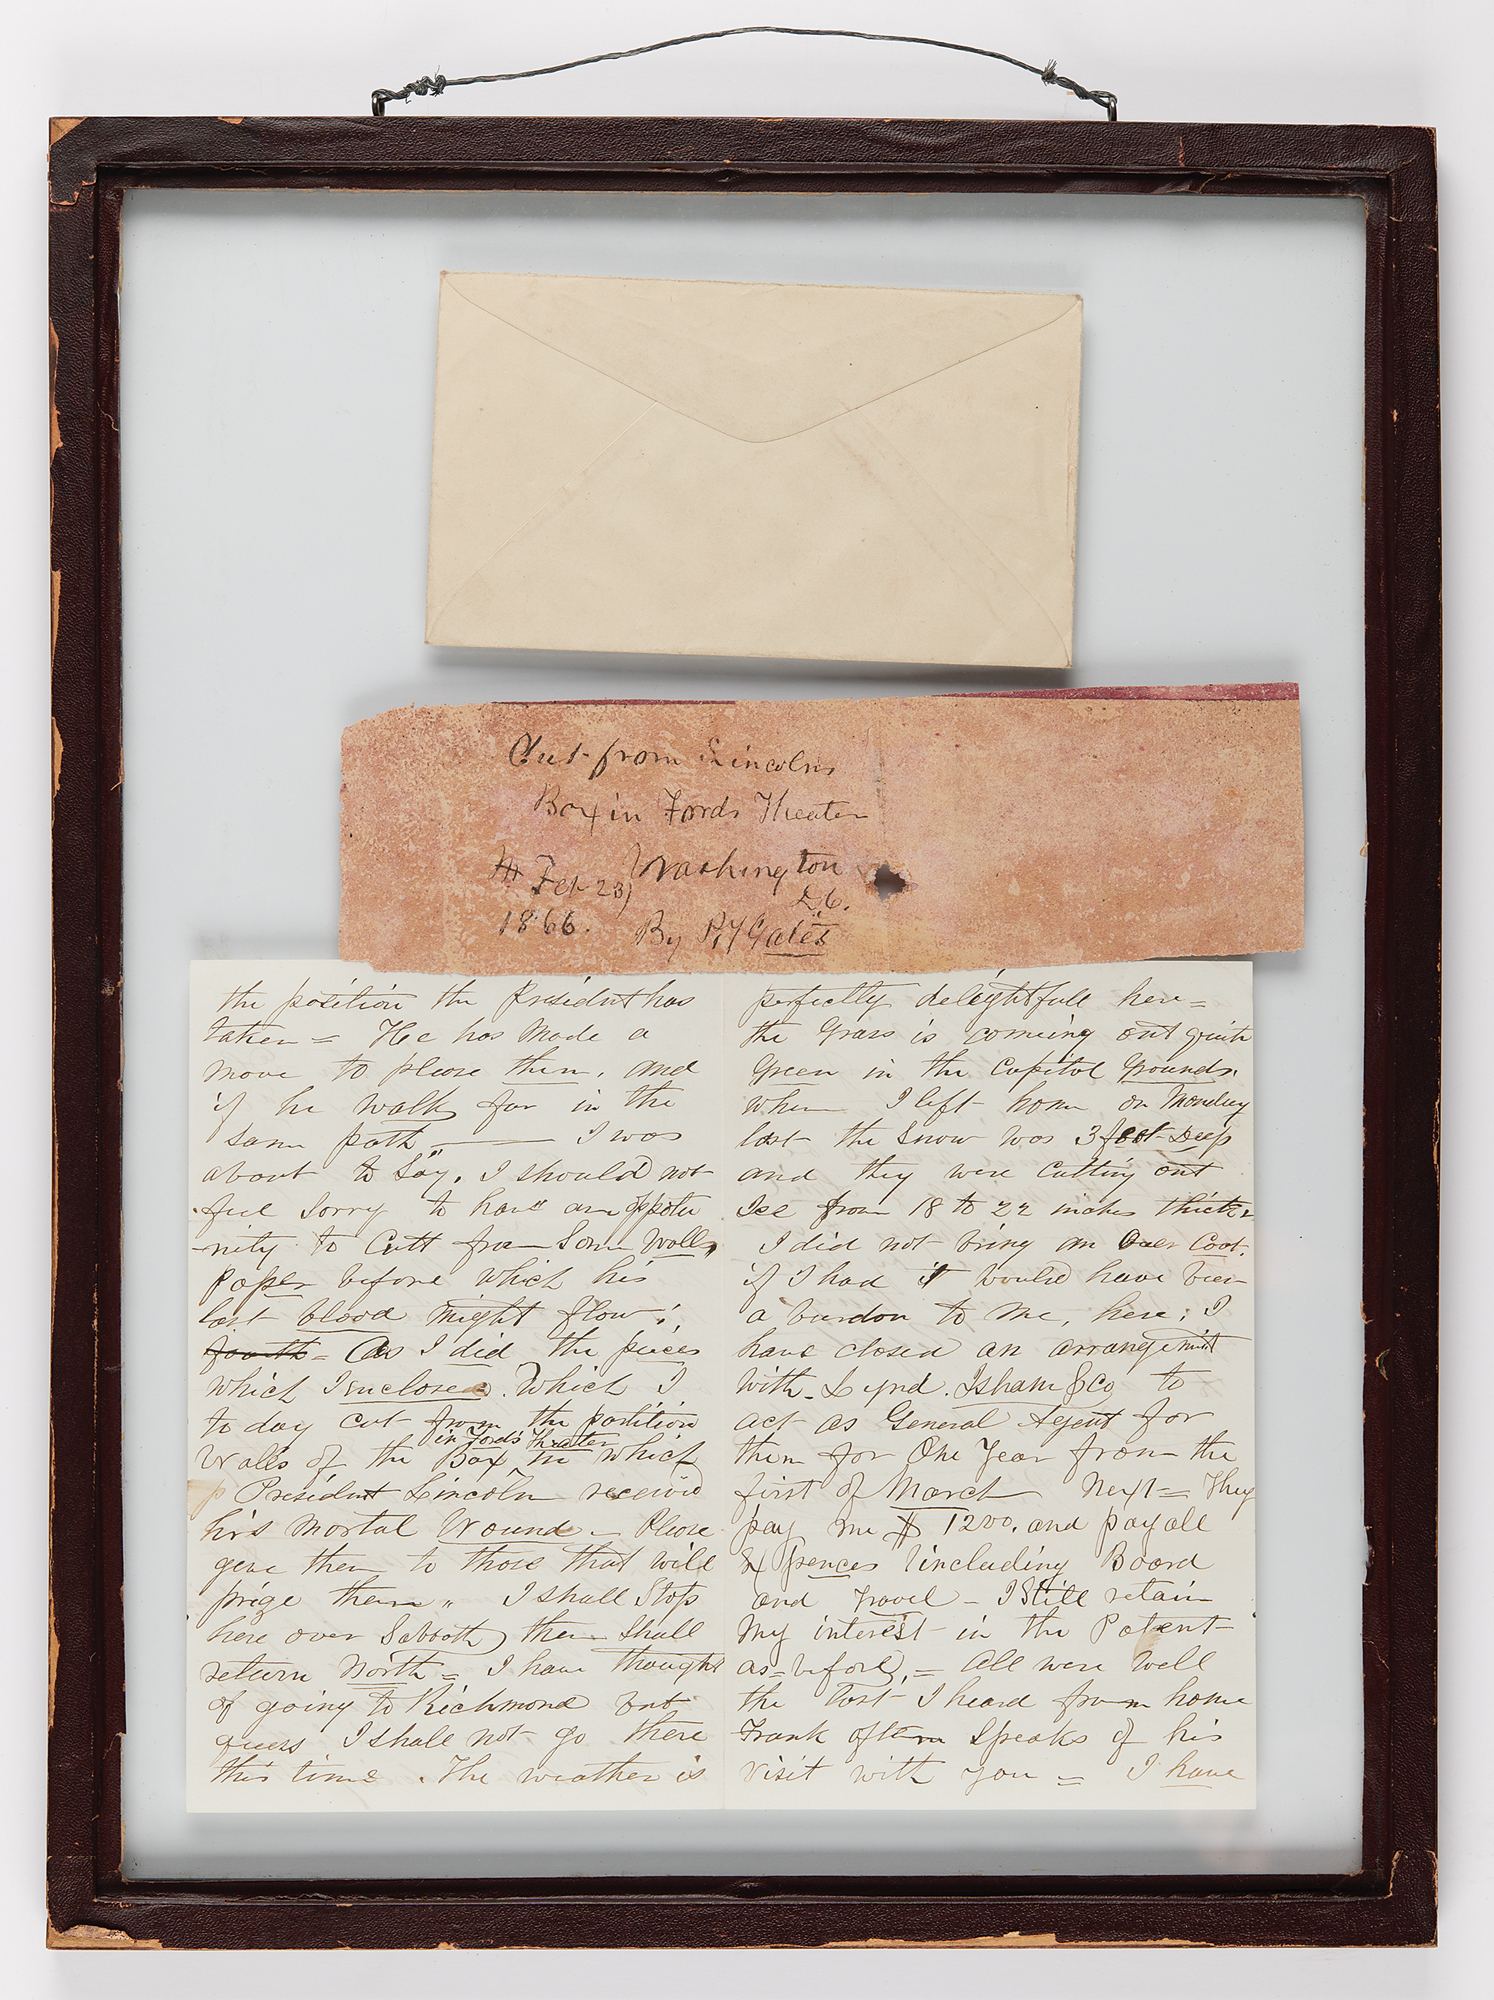 Cut from Lincolns
Box in Fords Theater
Washington
D.C.
Feb 23,
1866.
By Gales
the position the President has
taken = He has made a
move to please them, and
if he walks far in the
same path ——— I was
about to Say, I should not
feel sorry to have an oppotu
nity to Cutt from Some Wall,
Paper before which his
last blood might flow;
fourth = As I did the pieces
which I enclosed. Which I
to day cut from the partition
in Fords Theater
Walls of the Box in which
President Lincoln received
his mortal Wound — Please
give them to those that will
prize them " I shall Stop
here over Sabbath, then shall
return North = I have thought
of going to Richmond but
guess I shall not go there
this time. The weather is
perfectly delightfull here =
the Grass is comeing out quite
Green in the Capitol Grounds.
when I left home on Monday
last the Snow was 3 feet Deep
and they were cutting out
Ice from 18 to 22 inches thick,
I did not bring an Over Coat.
if I had it would have been
a burdon to me, here; I
have closed an arrangement
with Lynd. Isham & Co to
act as General Agent for
them for One Year from the
first of March Next = They
pay me $1200, and pay all
Expences including Board
and travel — I Still retain
my interest in the Patent
as = before, = All were well
the last I heard from home
Frank often speaks of his
visit with you = I have